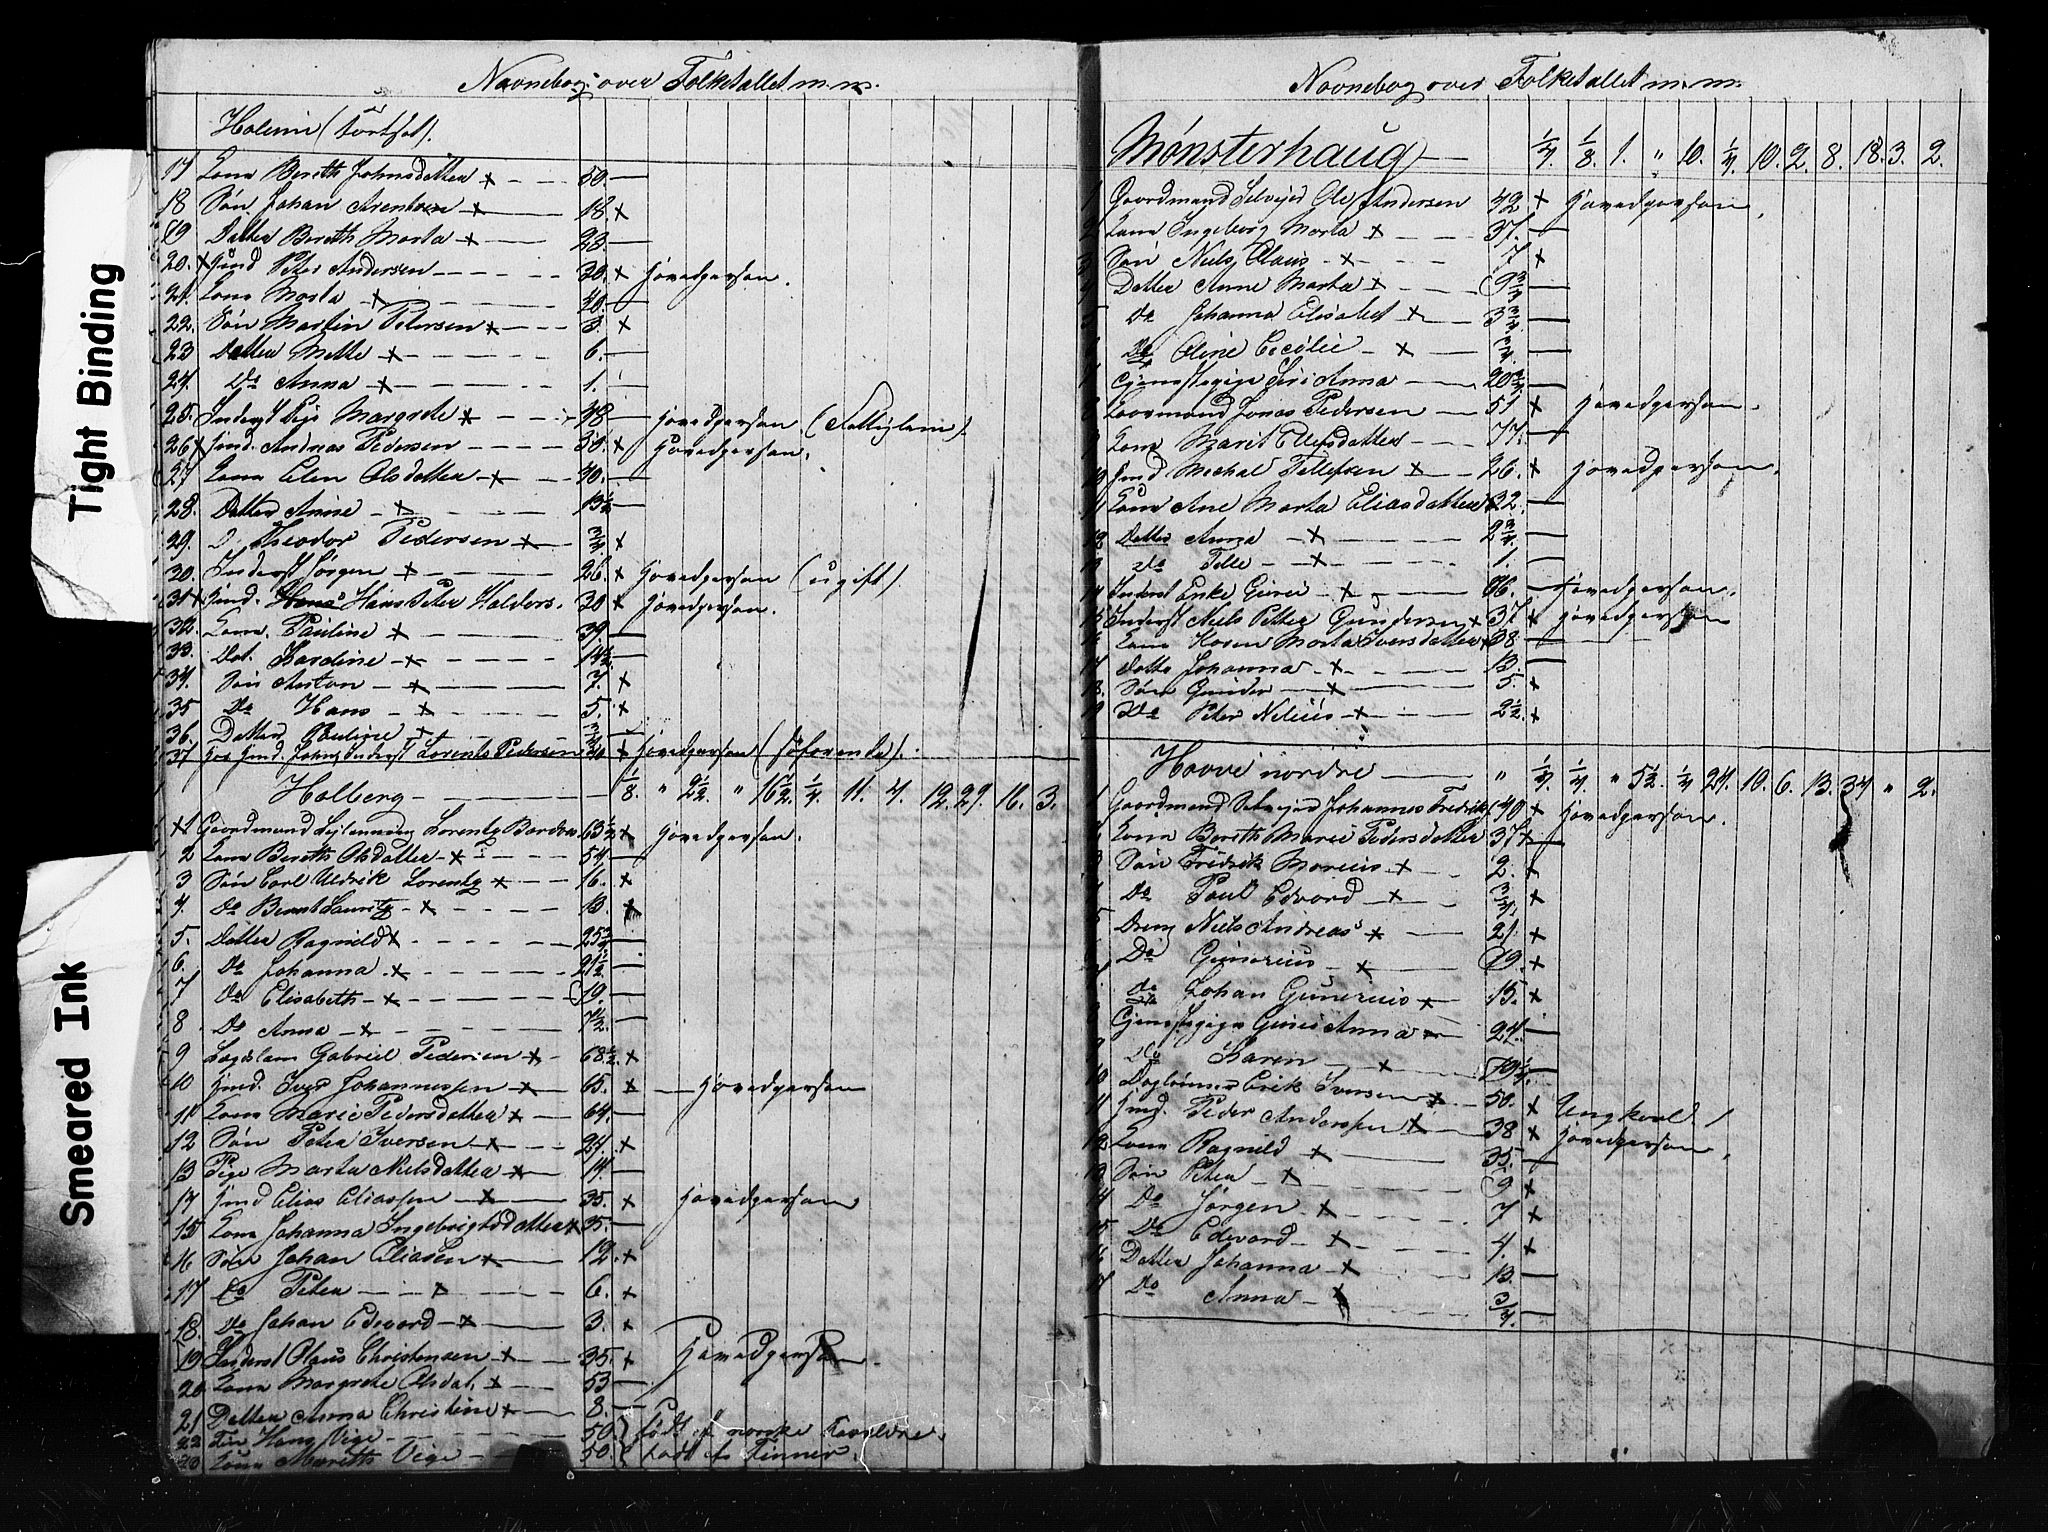 Tight Binding
Smeared Ink
Navnebog over Folketallet m.m.
Holum (fortsat).
17 Kone Berith Johnsdatter x 50. —
18 Søn Johan Arentsen x 18. x
19 Datter Berith Marta x 23 —
20. x Hmd Peter Andersen 30. x Hovedperson.
21. Kone Marta x 40. —
22. Søn Martin Petersen x 3. x
23 Datter Mette x 6. —
24. Do Anna x 1. —
25. Inderst Pige Margrete x 48 — Hovedperson (Fattiglem).
26 x Hmd. Andreas Pedersen 38. x Hovedperson.
27 Kone Elen Olsdatter x 40. —
28. Datter Anne x 13½ —
29. Theodor Pedersen x ¾ x
30. Inderst Jørgen x 26. x Hovedperson (ugift).
31 x Hmd. Hans Peter Halders. 30 x Hovedperson.
32. Kone. Pauline x 39. —
33. Dat. Karoline x 14½ —
34. Søn Anton x 7. x
35 Do Hans x 5. x
36. Datter Pauline x ¾ —
37 Hos Hmd. Johns Inderst Lorents Pedersen x Hovedperson (søfarende).
Holberg — ⅛ " 2½. " 16½. ¼. 11. 4. 12. 29. 16. 3.
x 1 Gaardmand Lorentz 63½ x Hovedperson.
2 Kone Berith Olsdatter x 54. —
3 Søn Carl Uldrik Lorentz x 16. x
4. Do Bernt Lauritz x 13. x
5. Datter Ragnild x 25¾ —
6. Do Johanna x 21½ —
7 Do Elisabeth x 19. —
8. Do Anna x 7½. —
9 Lægdslem Gabriel Pedersen x 68½. x
10 Hmd. Iver Johannessen x 65. x — Hovedperson
11 Kone Marie Pedersdatter x 64. —
12 Søn Peter Iversen x 24. x
13 Pige Marta Nielsdatter x 14. —
14 Hmd Elias Eliassen x 35. x Hovedperson
15 Kone Johanna Ingebrigtsdatter x 35. —
16 Søn Johan Eliasen x 12. x
17 Do Peter x 6. x
18. Do Johan Edvard x 3. x
19 Inderst Olaus Christensen x 35. x Hovedperson.
20. Kone Margrete Olsdat. x 53 —
21 Datter Anna Christine x 8. —
22 Fin Hans Vige 50. } født af norske Forældre.
23 Kone Marith Vige 50. { født af Finner.
Navnebog over Folketallet m.m.
Mønsterhaug — ¼. ⅛. 1. " 10. ¼. 10. 2. 8. 18. 3. 2.
1 Gaardmand Selvejer Ole Andersen 42 x Hovedperson.
2 Kone Ingeborg Marta x 37. —
Søn Niels Olaus x 7 x
Datter Anne Marta x 9¾ —
5 Do Johanna Elisabet x 3¾ —
Do Oline Cecilie x ¾ —
Tjenestepige Siri Anna 20¾ —
8 Kaarmand Jonas Pedersen 51 x Hovedperson.
9 Kone Marit Ellefsdatter 77. —
10 Hmd Mechal Tellefsen x 26. x Hovedperson.
11 Kone Ane Marta Eliasdatter x 32. —
12 Datter Anna x 2¾ —
13 do Telle x 1. —
14 Inderst Enke Guren x 96. — Hovedperson.
15 Inderst Niels Petter Gundersen x 37. x Hovedperson
16 Kone Karen Marta Iversdatter x 38 —
17 Datter Johanna x 13. —
18. Søn Gunder x 5. x
19 Do Peter Nilius x 2½. x
Hovve nordre — " ¼. ¼. " 5½. ¼ 24. 10. 6. 13. 34 " 2.
1 Gaardmand Selvejer Johannes Fredrik 40 x Hovedperson.
2 Kone Berith Marie Pedersdatter 37 —
3 Søn Fredrik Marcius x 2. x
4 Do Paul Edvard x ¾. x
5 Dreng Niels Andreas x 21 x
Do Gunerius x 19. x
do Johan Gunerius x 15. x
Tjenestepige Guru Anna x 24. —
9 Do Karen x 19¼ —
10 Daglønner Erik Iversen x 50. x Ungkarl
11 Hmd. Peder Anderssen x 38 x Hovedperson.
12. Kone Ragnild x 35. —
13 Søn Peter x 9 x
14 Do Jørgen x 7 x
15 Do Edvard x 4. x
16 Datter Johanna x 13. —
17 Do Anna x ¾. —